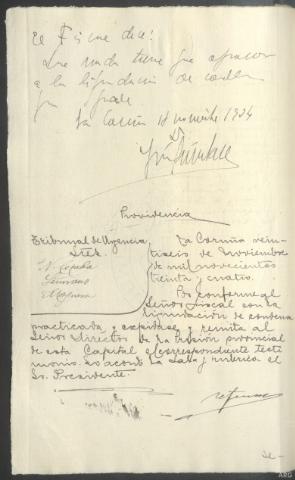 El Fiscal dice:
Que nada tiene que oponer
a la liquidación de condena
que precede
La Coruña 18 noviembre 1934
Providencia
Tribunal de Urgencia
Sres.
La Coruña vein-
tiseis de Noviembre
de mil novecientos
treinta y cuatro.
Por conforme el
Señor Fiscal con la
liquidacion de condena
practicada, y expidase y remita al
Señor Director de la Prisión provincial
de esta Capital el correspondiente testi-
monio. Lo acordó la Sala y rubrica el
Sr. Presidente.